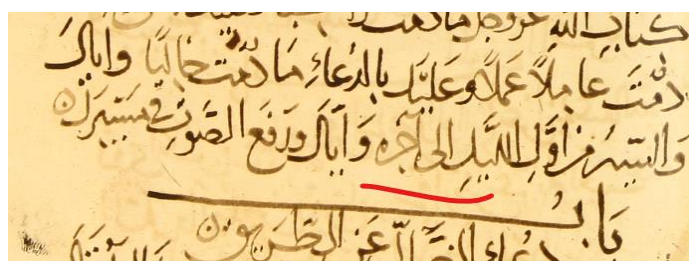 كتاب الله عز وجل ما دمت
دمت عاملا عملا وعليك بالدعاء ما دمت خاليا واياك
والسير من اول الليل الى آخره واياك ورفع الصوت في مسيرك
باب
دعاء الضال عن الطريق